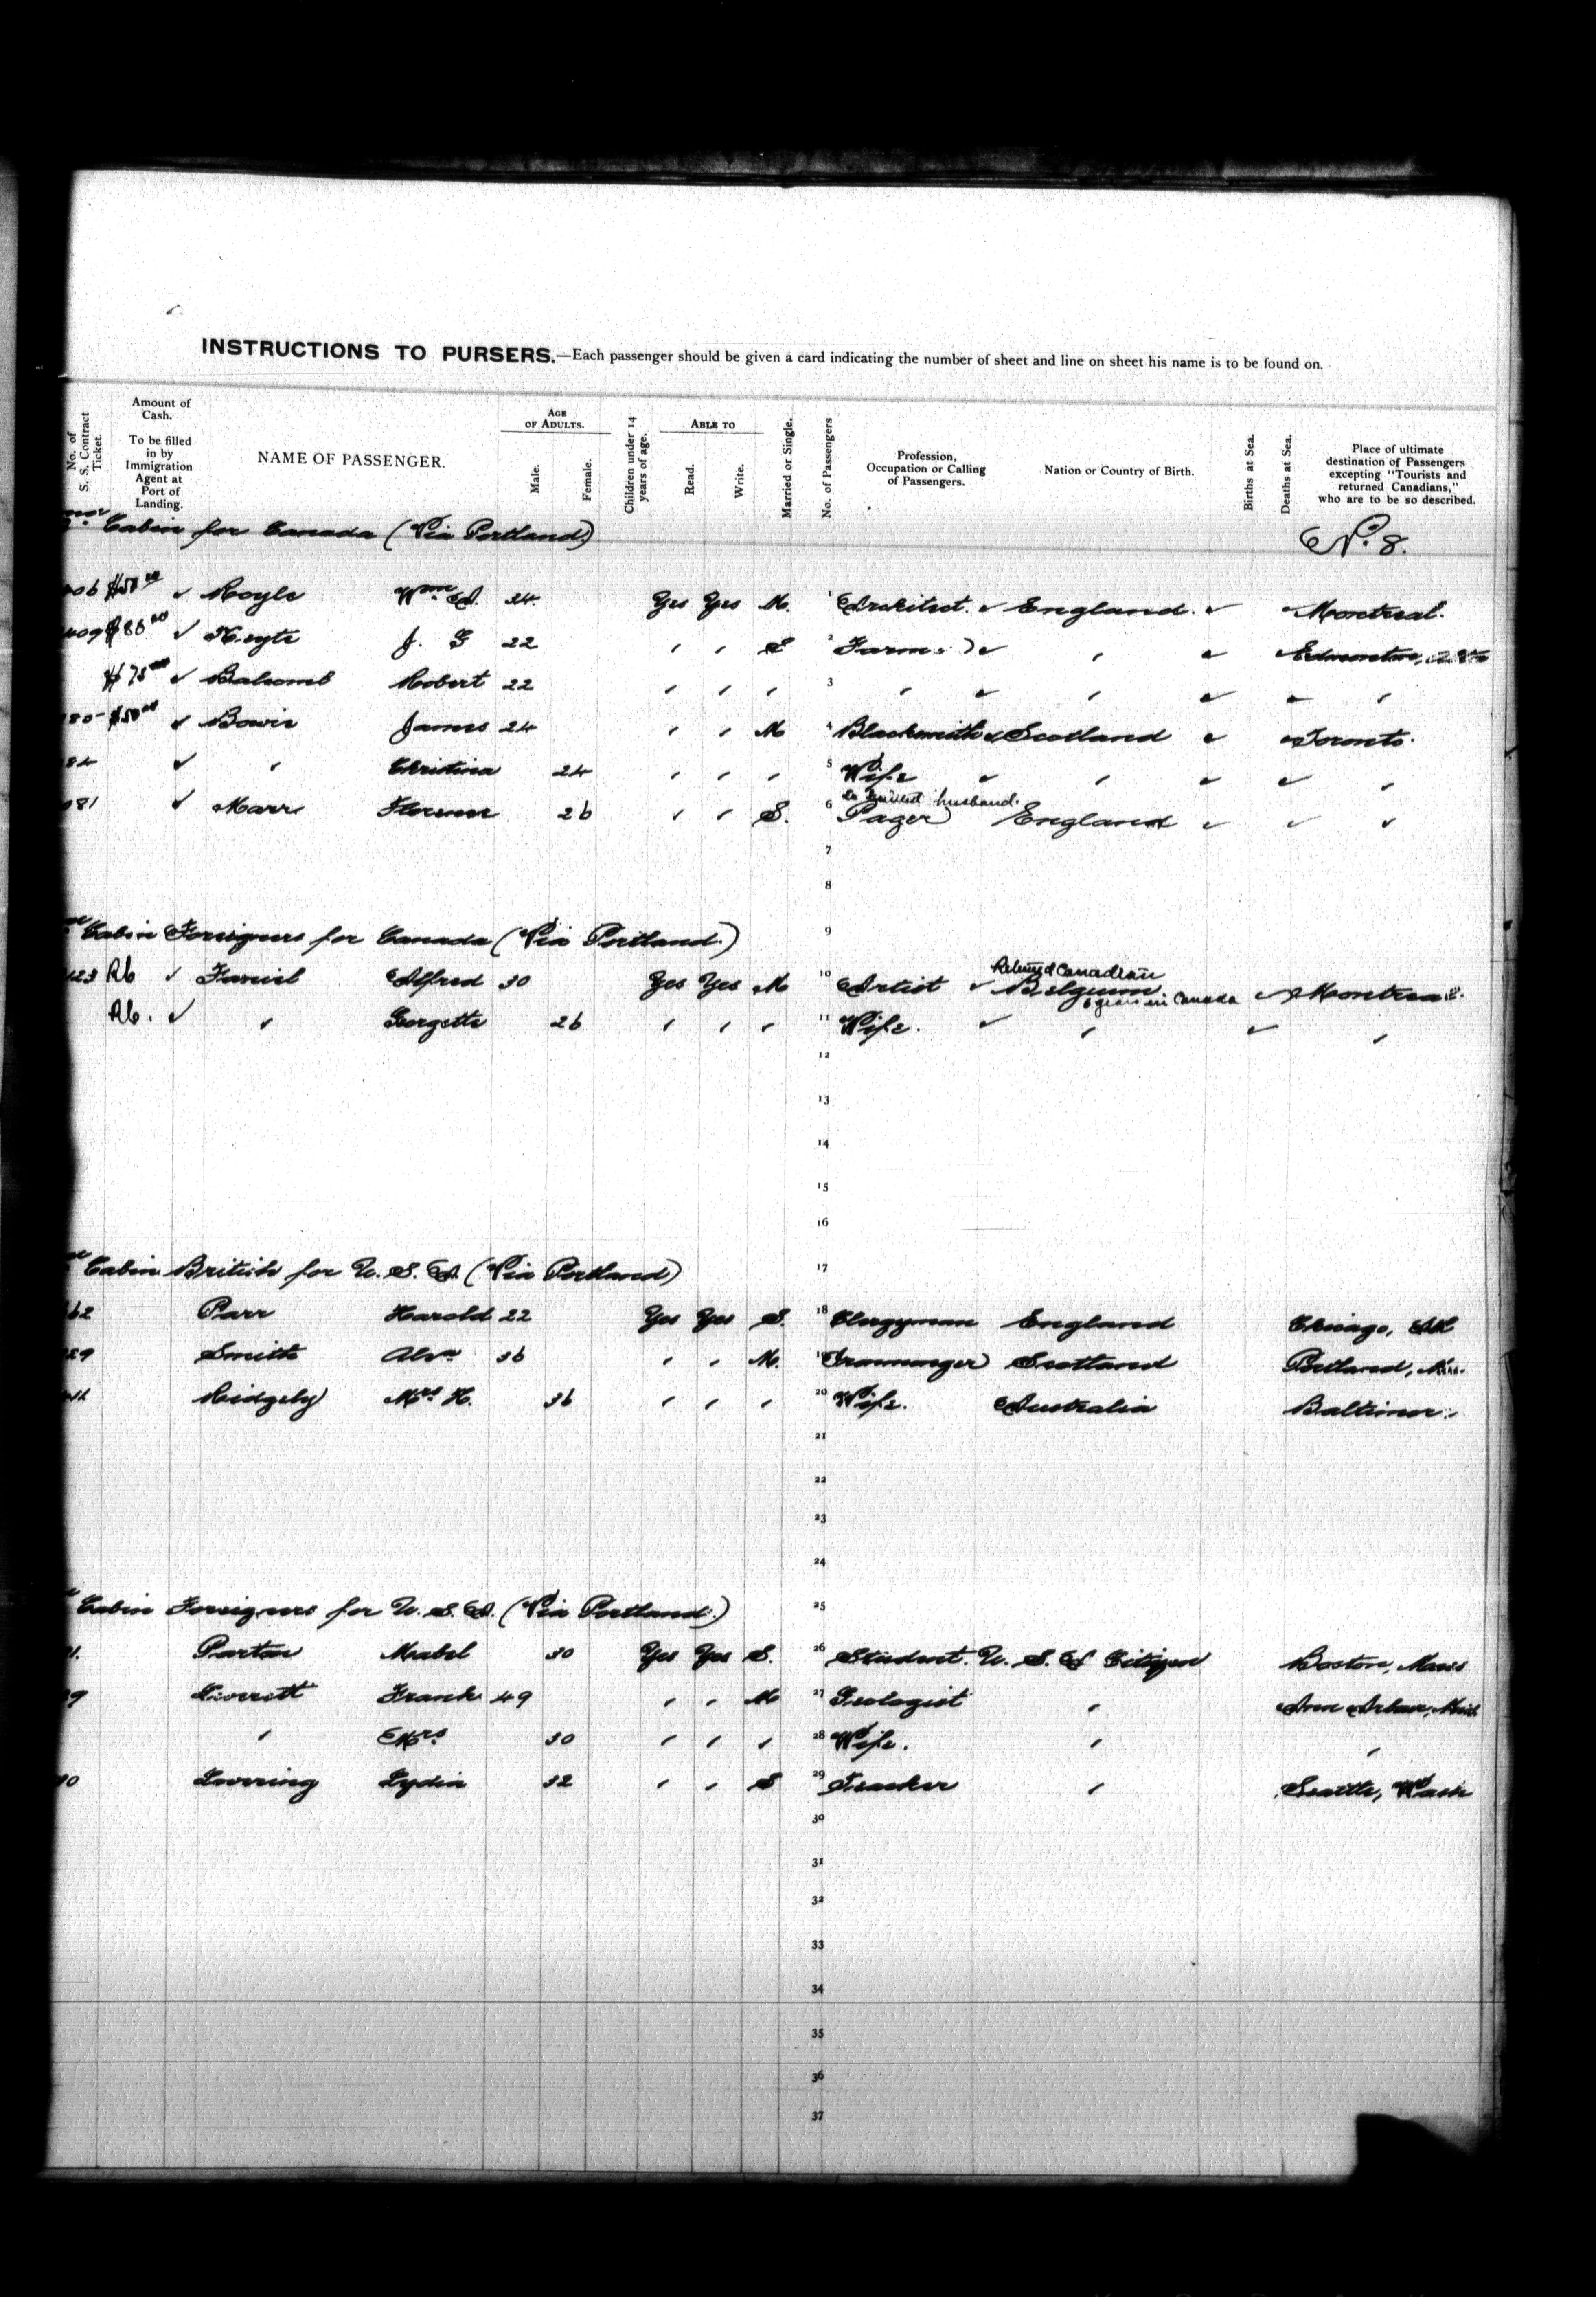 INSTRUCTIONS TO PURSERS.—Each passenger should be given a card indicating the number of sheet and line on sheet his name is to be found on.
No. of S. S. Contract Ticket.
Amount of Cash. To be filled in by Immigration Agent at Port of Landing.
NAME OF PASSENGER.
AGE OF ADULTS.
Male.
Female.
Children under 14 years of age.
ABLE TO
Read.
Write.
Married or Single.
No. of Passengers
Profession, Occupation or Calling of Passengers.
Nation or Country of Birth.
Births at Sea.
Deaths at Sea.
Place of ultimate destination of Passengers excepting "Tourists and returned Canadians," who are to be so described.
Cabin for Canada (Via Portland)
No. 8.
06 $50 00 ✓ Royle Wm. A. 24 Yes Yes M. 1 Architect. ✓ England. ✓ Montreal.
09 $80 00 ✓ J. G 22 " " S 2 ✓ " ✓ Edmonton,
$75 00 ✓ Balcomb Robert 22 " " " 3 " ✓ " ✓ "
80 $50 00 ✓ Bowie James 24 " " M 4 Blacksmith ✓ Scotland ✓ Toronto.
84 ✓ " Christina 24 " " " 5 Wife ✓ " ✓ ✓ "
to husband.
81 ✓ Marr Florence 26 " " S. 6 England ✓ ✓ ✓
7
8
9
Cabin Foreigners for Canada (Via Portland.)
Returned Canadian
23 Rb ✓ Alfred 30 Yes Yes M 10 Artist ✓ Belgium ✓ Montreal.
6 years in Canada
Rb. ✓ " Gorgette 26 " " " 11 Wife. ✓ " ✓ "
12
13
14
15
16
17
Cabin British for U. S. A. (Via Portland)
62 Parr Harold 22 Yes Yes S. 18 Clergyman England Chicago, Ill
29 Smith Alxr 36 " " M. 19 Ironmonger Scotland Portland,
Ridgely Mrs H. 36 " " " 20 Wife. Australia Baltimore
21
22
23
24
25
Cabin Foreigners for U. S. A. (Via Portland.)
Parton Mabel 30 Yes Yes S. 26 Student. U. S. A Citizen Boston, Mass
9 Leverett Frank 49 " " M 27 Geologist " Ann Arbour, Mich
" Mrs 30 " " " 28 Wife. " "
Lovering Lydia 32 " " S 29 Teacher " Seattle, Wash
30
31
32
33
34
35
36
37